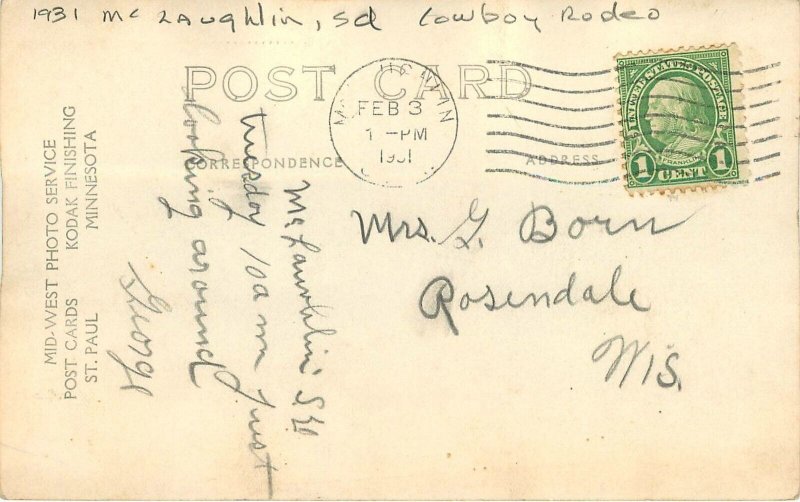 1931 Mc Laughlin, Sd Cowboy Rodeo
POST CARD
CORRESPONDENCE
ADDRESS
FEB 3
1-PM
1931
UNITED STATES POSTAGE
FRANKLIN
1 CENT 1
Mrs. G. Born
Rosendale
Wis.
McLaughlin SD
tuesday 10 am Just
looking around
George
MID-WEST PHOTO SERVICE
POST CARDS KODAK FINISHING
ST. PAUL MINNESOTA